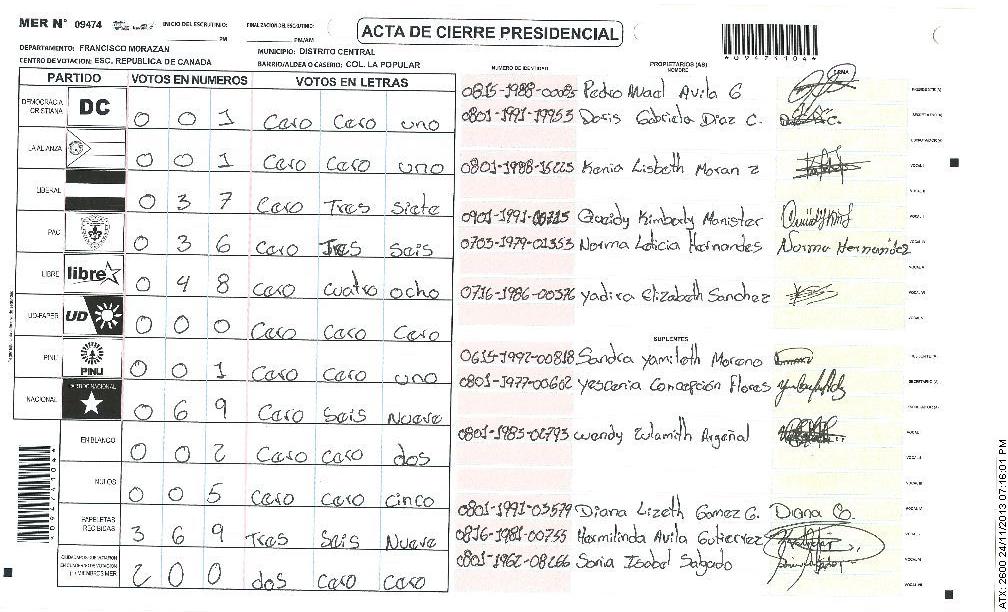 MER N° 09474 INICIO DEL ESCRUTINIO: PM FINALIZACION DEL ESCRUTINIO: PM/AM
ACTA DE CIERRE PRESIDENCIAL
*09474104*
DEPARTAMENTO: FRANCISCO MORAZAN MUNICIPIO: DISTRITO CENTRAL
CENTRO DE VOTACION: ESC. REPUBLICA DE CANADA BARRIO/ALDEA O CASERIO: COL. LA POPULAR
NUMERO DE IDENTIDAD PROPIETARIOS (AS) NOMBRE FIRMA
PARTIDO VOTOS EN NUMEROS VOTOS EN LETRAS
DEMOCRACIA CRISTIANA DC 0 0 1 Cero Cero uno
LA ALIANZA 0 0 1 Cero Cero uno
LIBERAL 0 3 7 Cero Tres Siete
PAC 0 3 6 Cero Tres Seis
LIBRE libre 0 4 8 Cero cuatro ocho
UD-FAPER UD 0 0 0 Cero Cero Cero
PINU PINU 0 0 1 Cero Cero uno
NACIONAL PARTIDO NACIONAL 0 6 9 Cero Seis Nueve
EN BLANCO 0 0 2 Cero cero dos
NULOS 0 0 5 Cero Cero cinco
PAPELETAS RECIBIDAS 3 6 9 Tres Seis Nueve
2 0 0 dos Cero Cero
0815-1988-00085 Pedro Avila G
0801-1991-19953 Doris Gabriela Diaz C.
0801-1988-16225 Kenia Lisbeth Moran Z
0901-1991-00715 Kimberly Manister
0703-1979-01353 Norma Leticia Hernandes Norma Hernandez
0716-1986-00376 Yadira Elizabeth Sanchez
SUPLENTES
0615-1992-00818 Sandra Yamileth Moreno
0801-1977-00602 Yescenia Concepción Flores
0801-1983-02793 Wendy Zulamith Argeñal
0801-1991-03579 Diana Lizeth Gomez G. Diana G.
0816-1981-00755 Hermilinda Avila Gutierrez
0801-1962-08266 Sonia Isabel Salgado
*09474104*
ATX: 2600 24/11/2013 07:16:01 PM